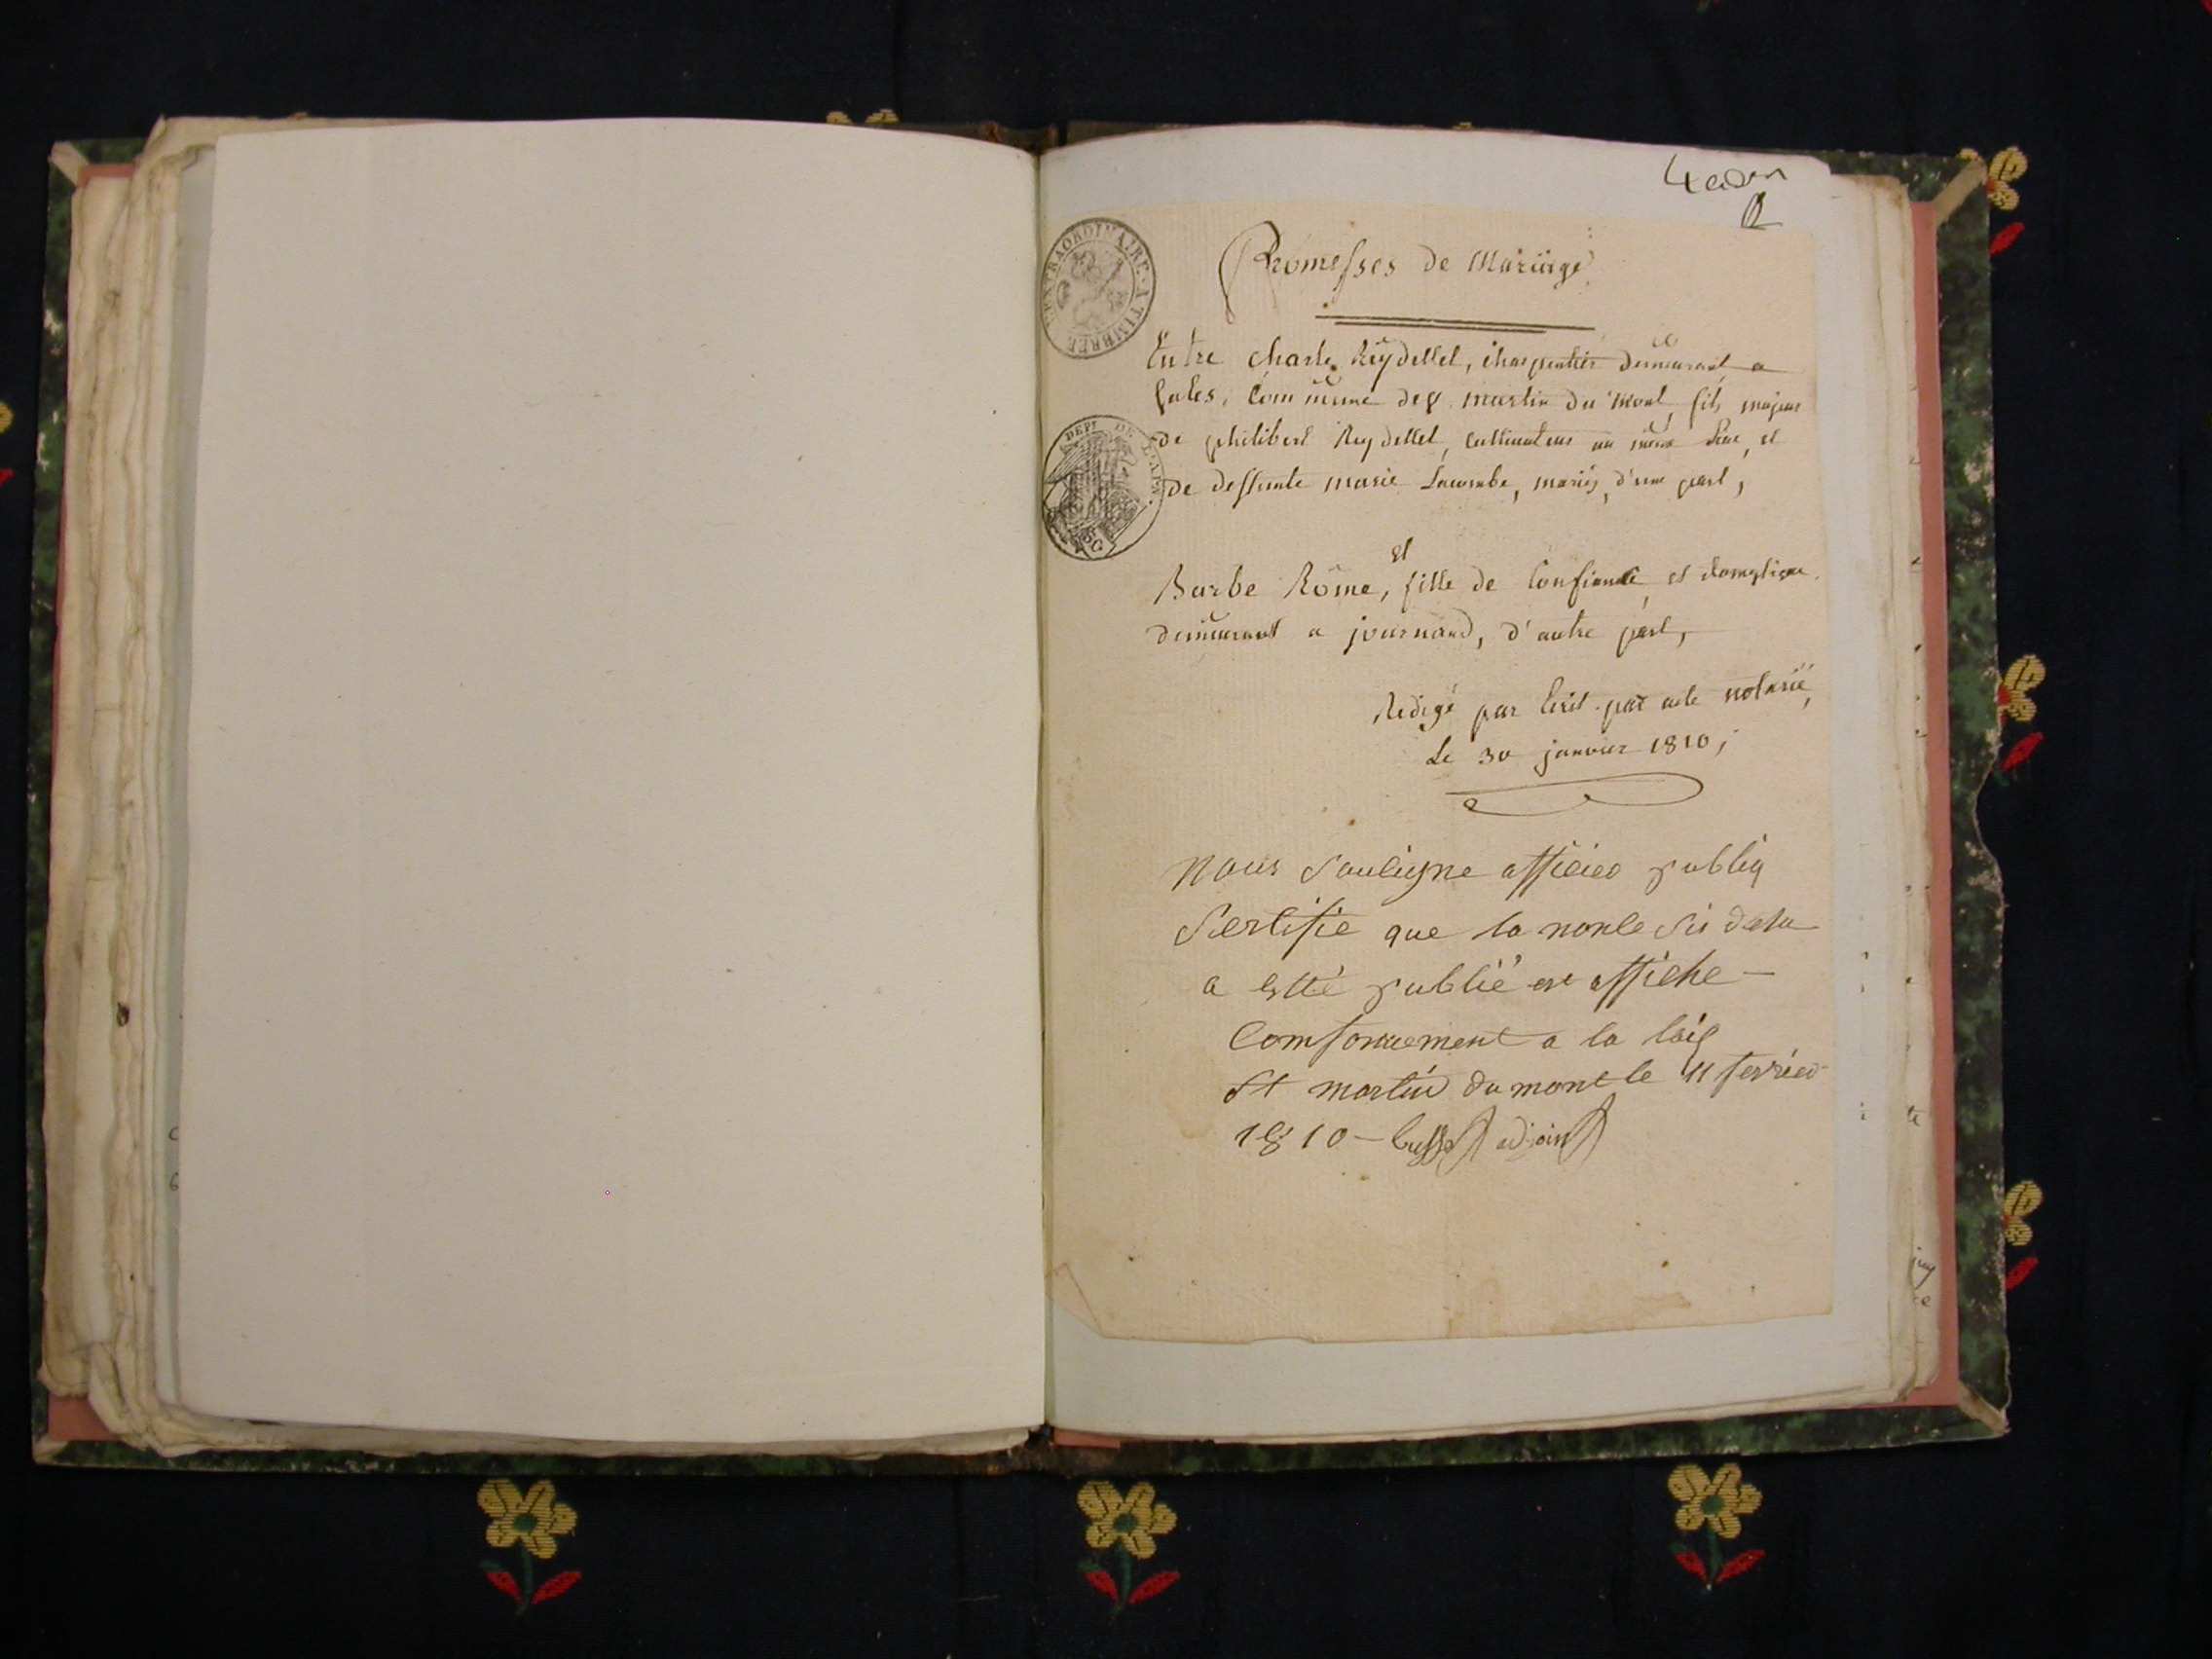 Promesses de Mariage
TIMBRE EXTRAORDINAIRE. A
Entre Charle Reydellet, charpentier demeurant a
Sales, Commune de St martin du mont, fils majeur
de philibert Reydellet, cultivateur au même lieu, et
DEPT DE L'AIN.
de deffunte marie Lacombe, mariés, d'une part,
50
et
Barbe Rôme, fille de Confiance, et domestique
demeurant a journand, d'autre part,
Redigé par Ecrit par acte notarié,
Le 30 janvier 1810,
nous souligne officier publiq
Sertifie que la nonse sis desu
a esté publié et affiche
Comformement a la loig
St martin du mont le 11 fevrier
1810 - adjoint